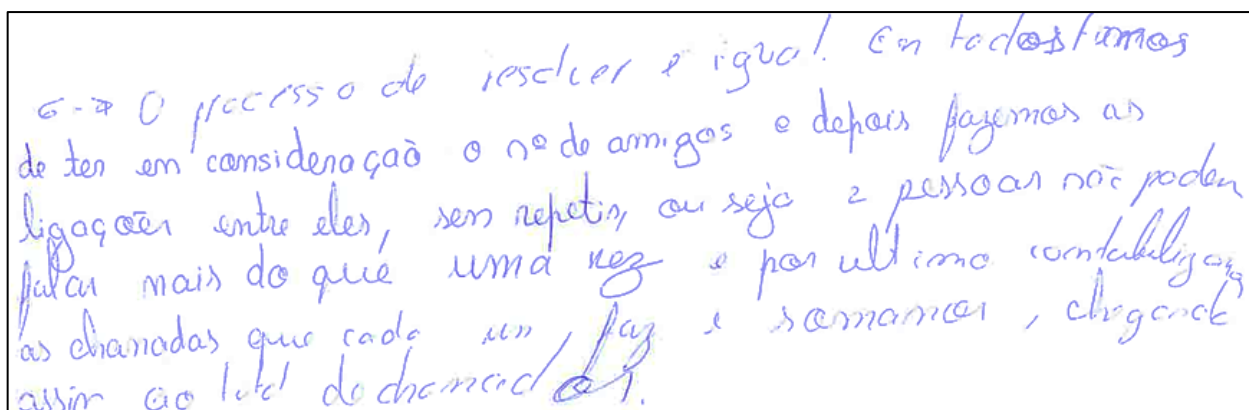 6-→ O processo de resolver e igual. Em todos temos
de ter em consideraçaò o nº de amigos e depois fazemos as
ligações entre eles, sem repetir, ou seja 2 pessoas não podem
falar mais do que uma vez e por ultimo contabilizamos
as chamadas que cada um faz e somamos, chegando
assim ao total de chamadas.